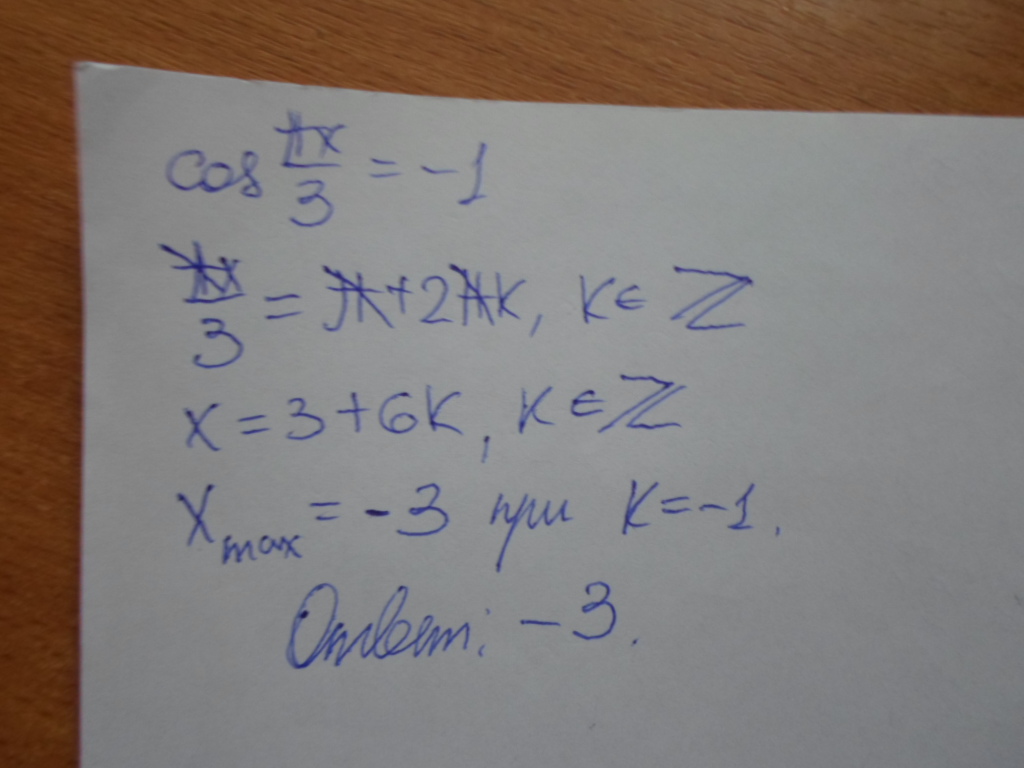 cos πx/3 = -1
πx/3 = π+2πk, k∈ℤ
x=3+6k, k∈ℤ
x_max = -3 при k=-1.
Ответ: -3.